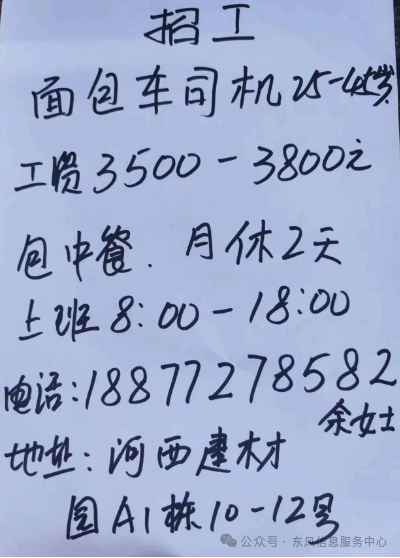 招工
面包车司机25-45岁
工资3500-3800元
包中餐.月休2天
上班8:00-18:00
电话:18877278582
余女士
地址:河西建材
园A1栋10-12号
公众号·东风信息服务中心